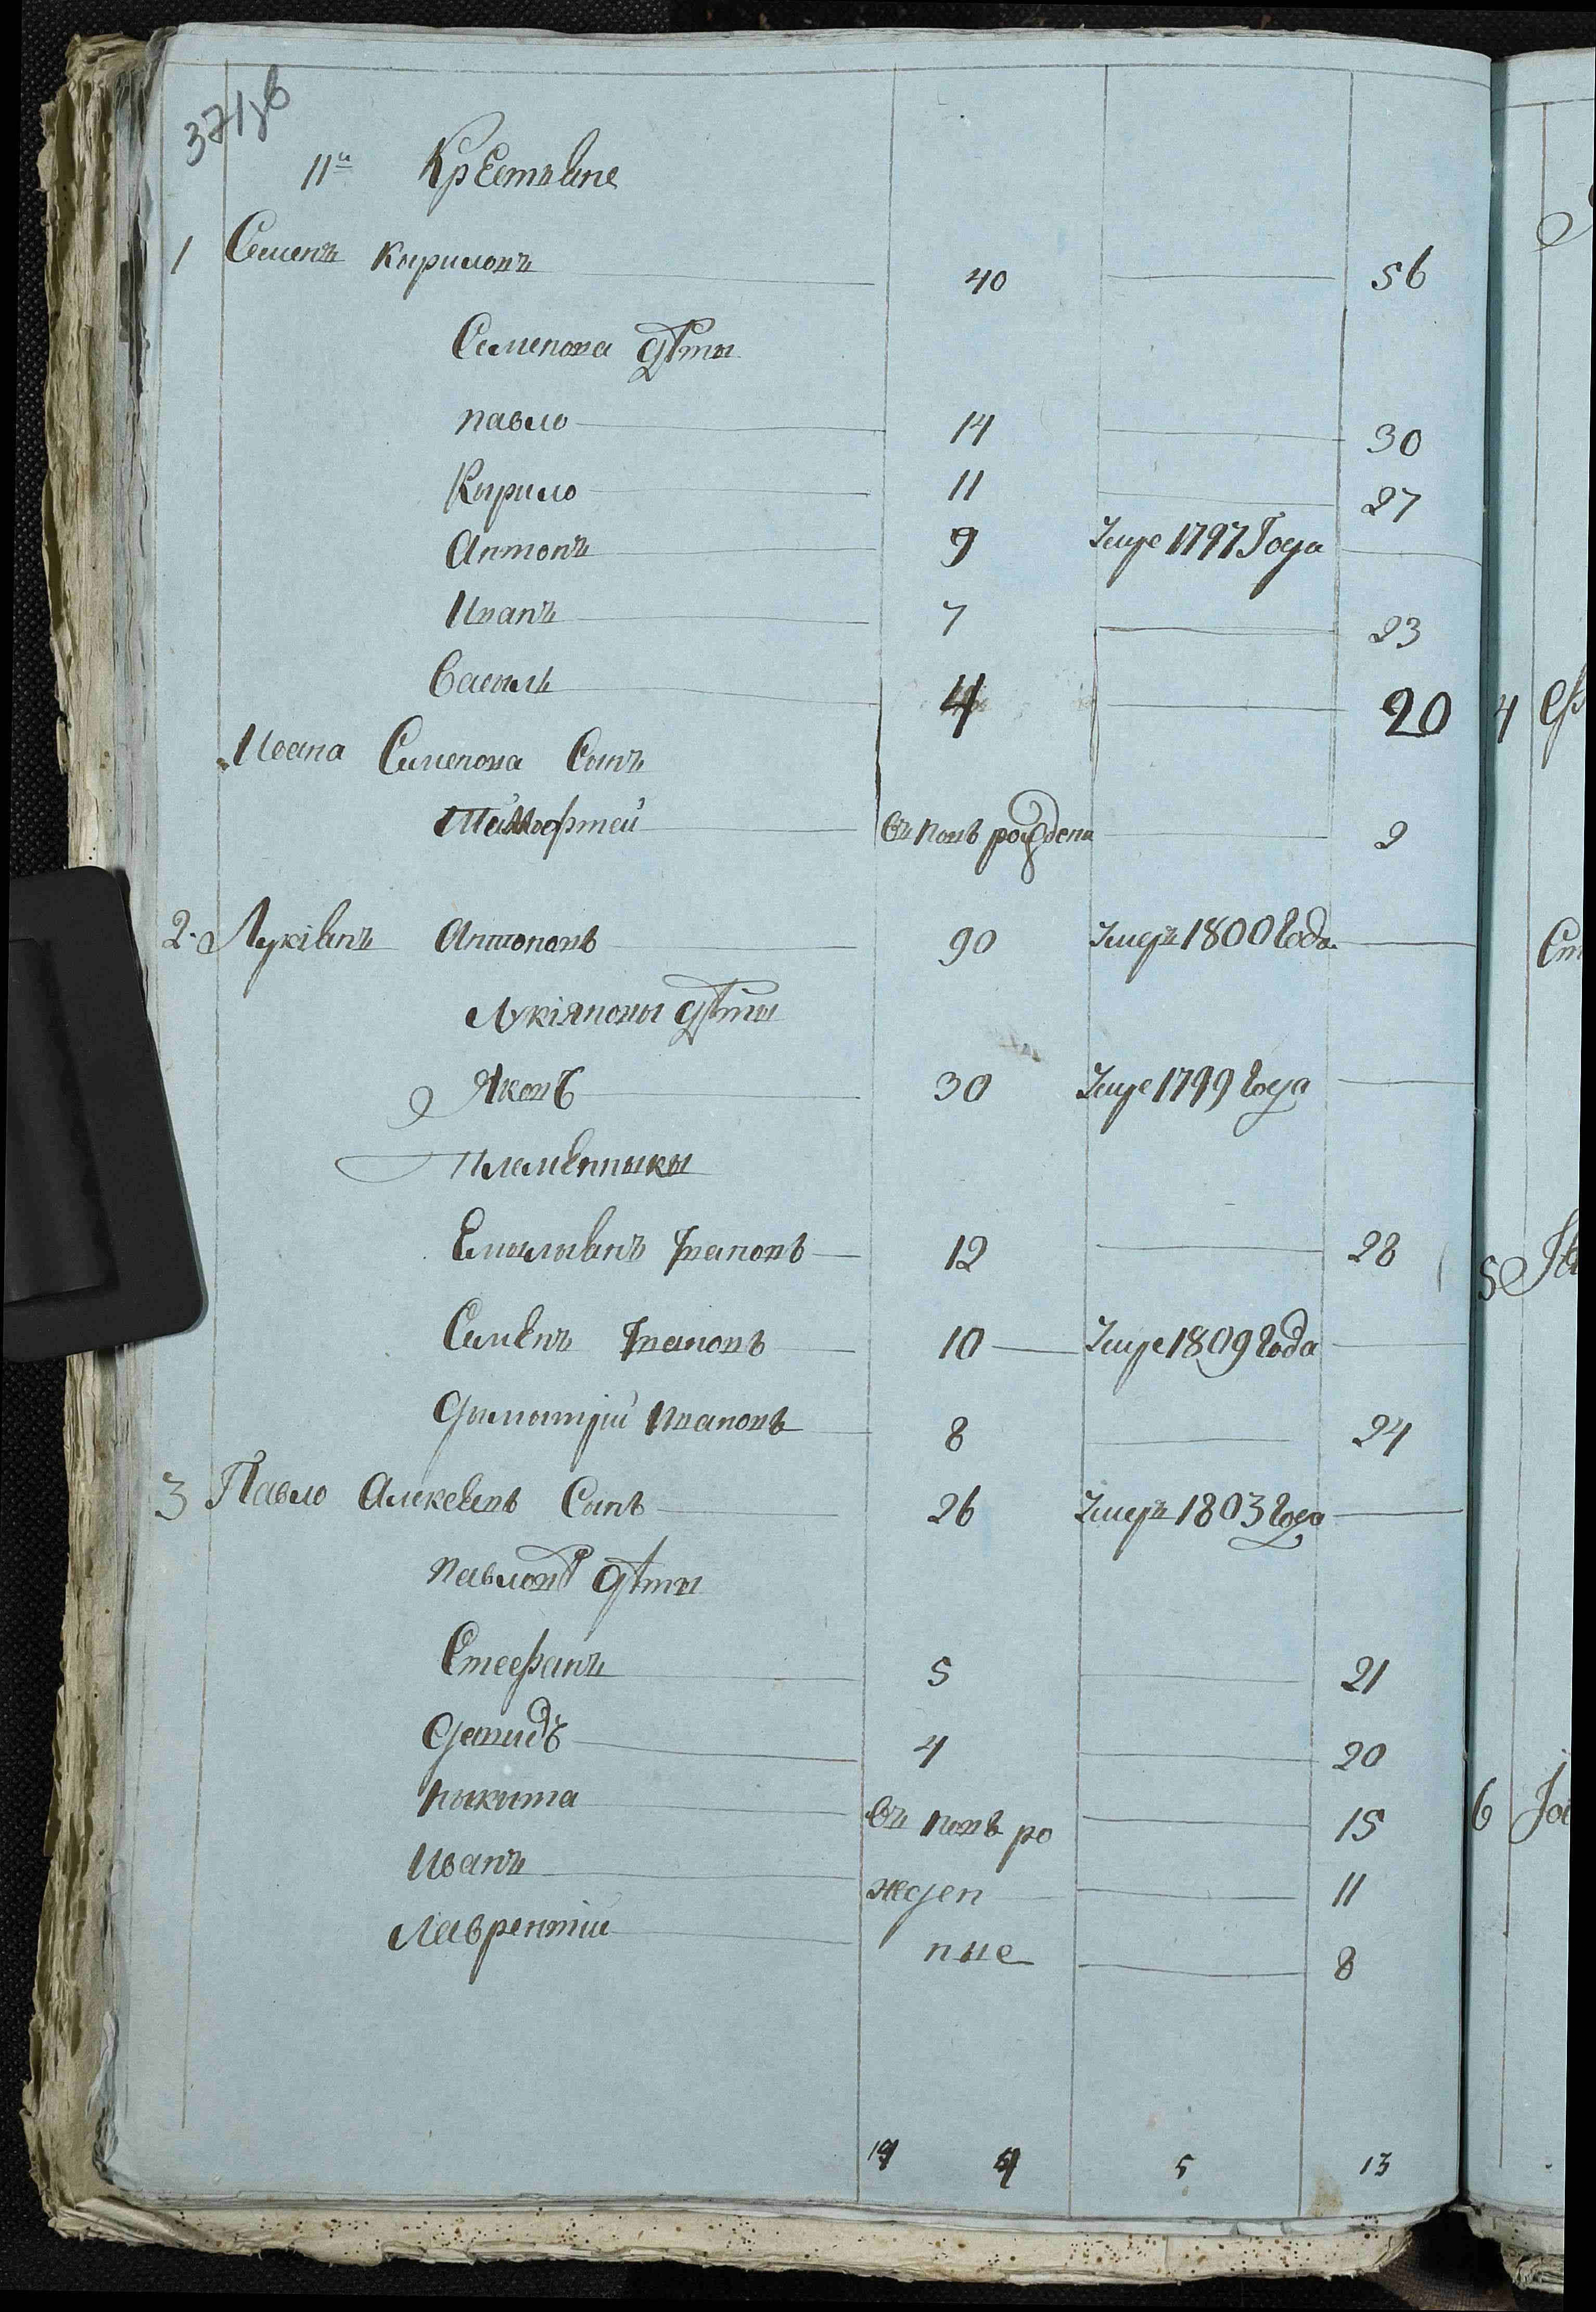 371 зв
11й Крестяне
1 Семенъ Кириловъ 40 56
Семенова дѣти
павло 14 30
Кирило 11 27
Антонъ 9 Умре 1797 Года
Иванъ 7 23
Василь 4 20
Ивана Семенова Сынъ
Тимофтей въ новѣ рождени 2
2. Лукіянъ Антоновъ 90 Умеръ 1800 Года
Лукіяновы дѣты
Яковъ 30 Умре 1799 года
племенныкы
Емылиянъ Ивановъ 12 28
Семенъ Ивановъ 10 Умре 1809 года
дымытрій Ивановъ 8 24
3 Павло Алексеевъ Сынъ 26 Умеръ 1803 года
павловы дѣти
Стефанъ 5 21
демидъ 4 20
ныкыта въ новѣ ро 15
Иванъ жден 11
Лаврентіи ные 8
5 13